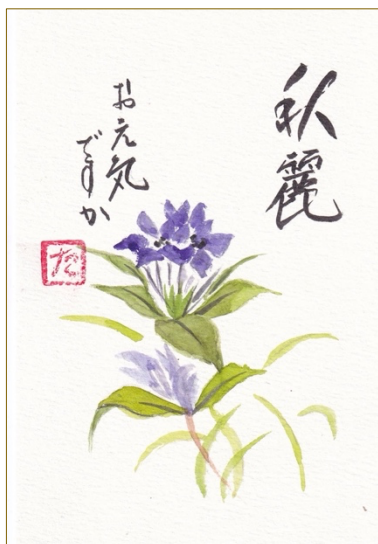 秋麗
お元気
ですか